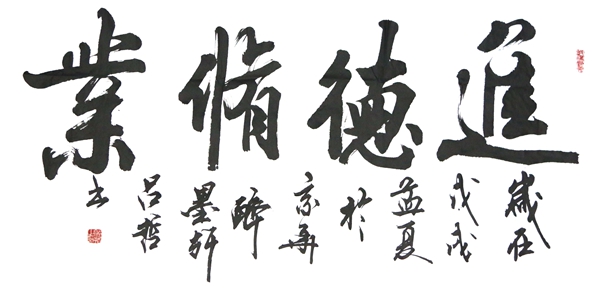 進德脩業
歲在戊戌孟夏於京華醉墨軒呂哲书